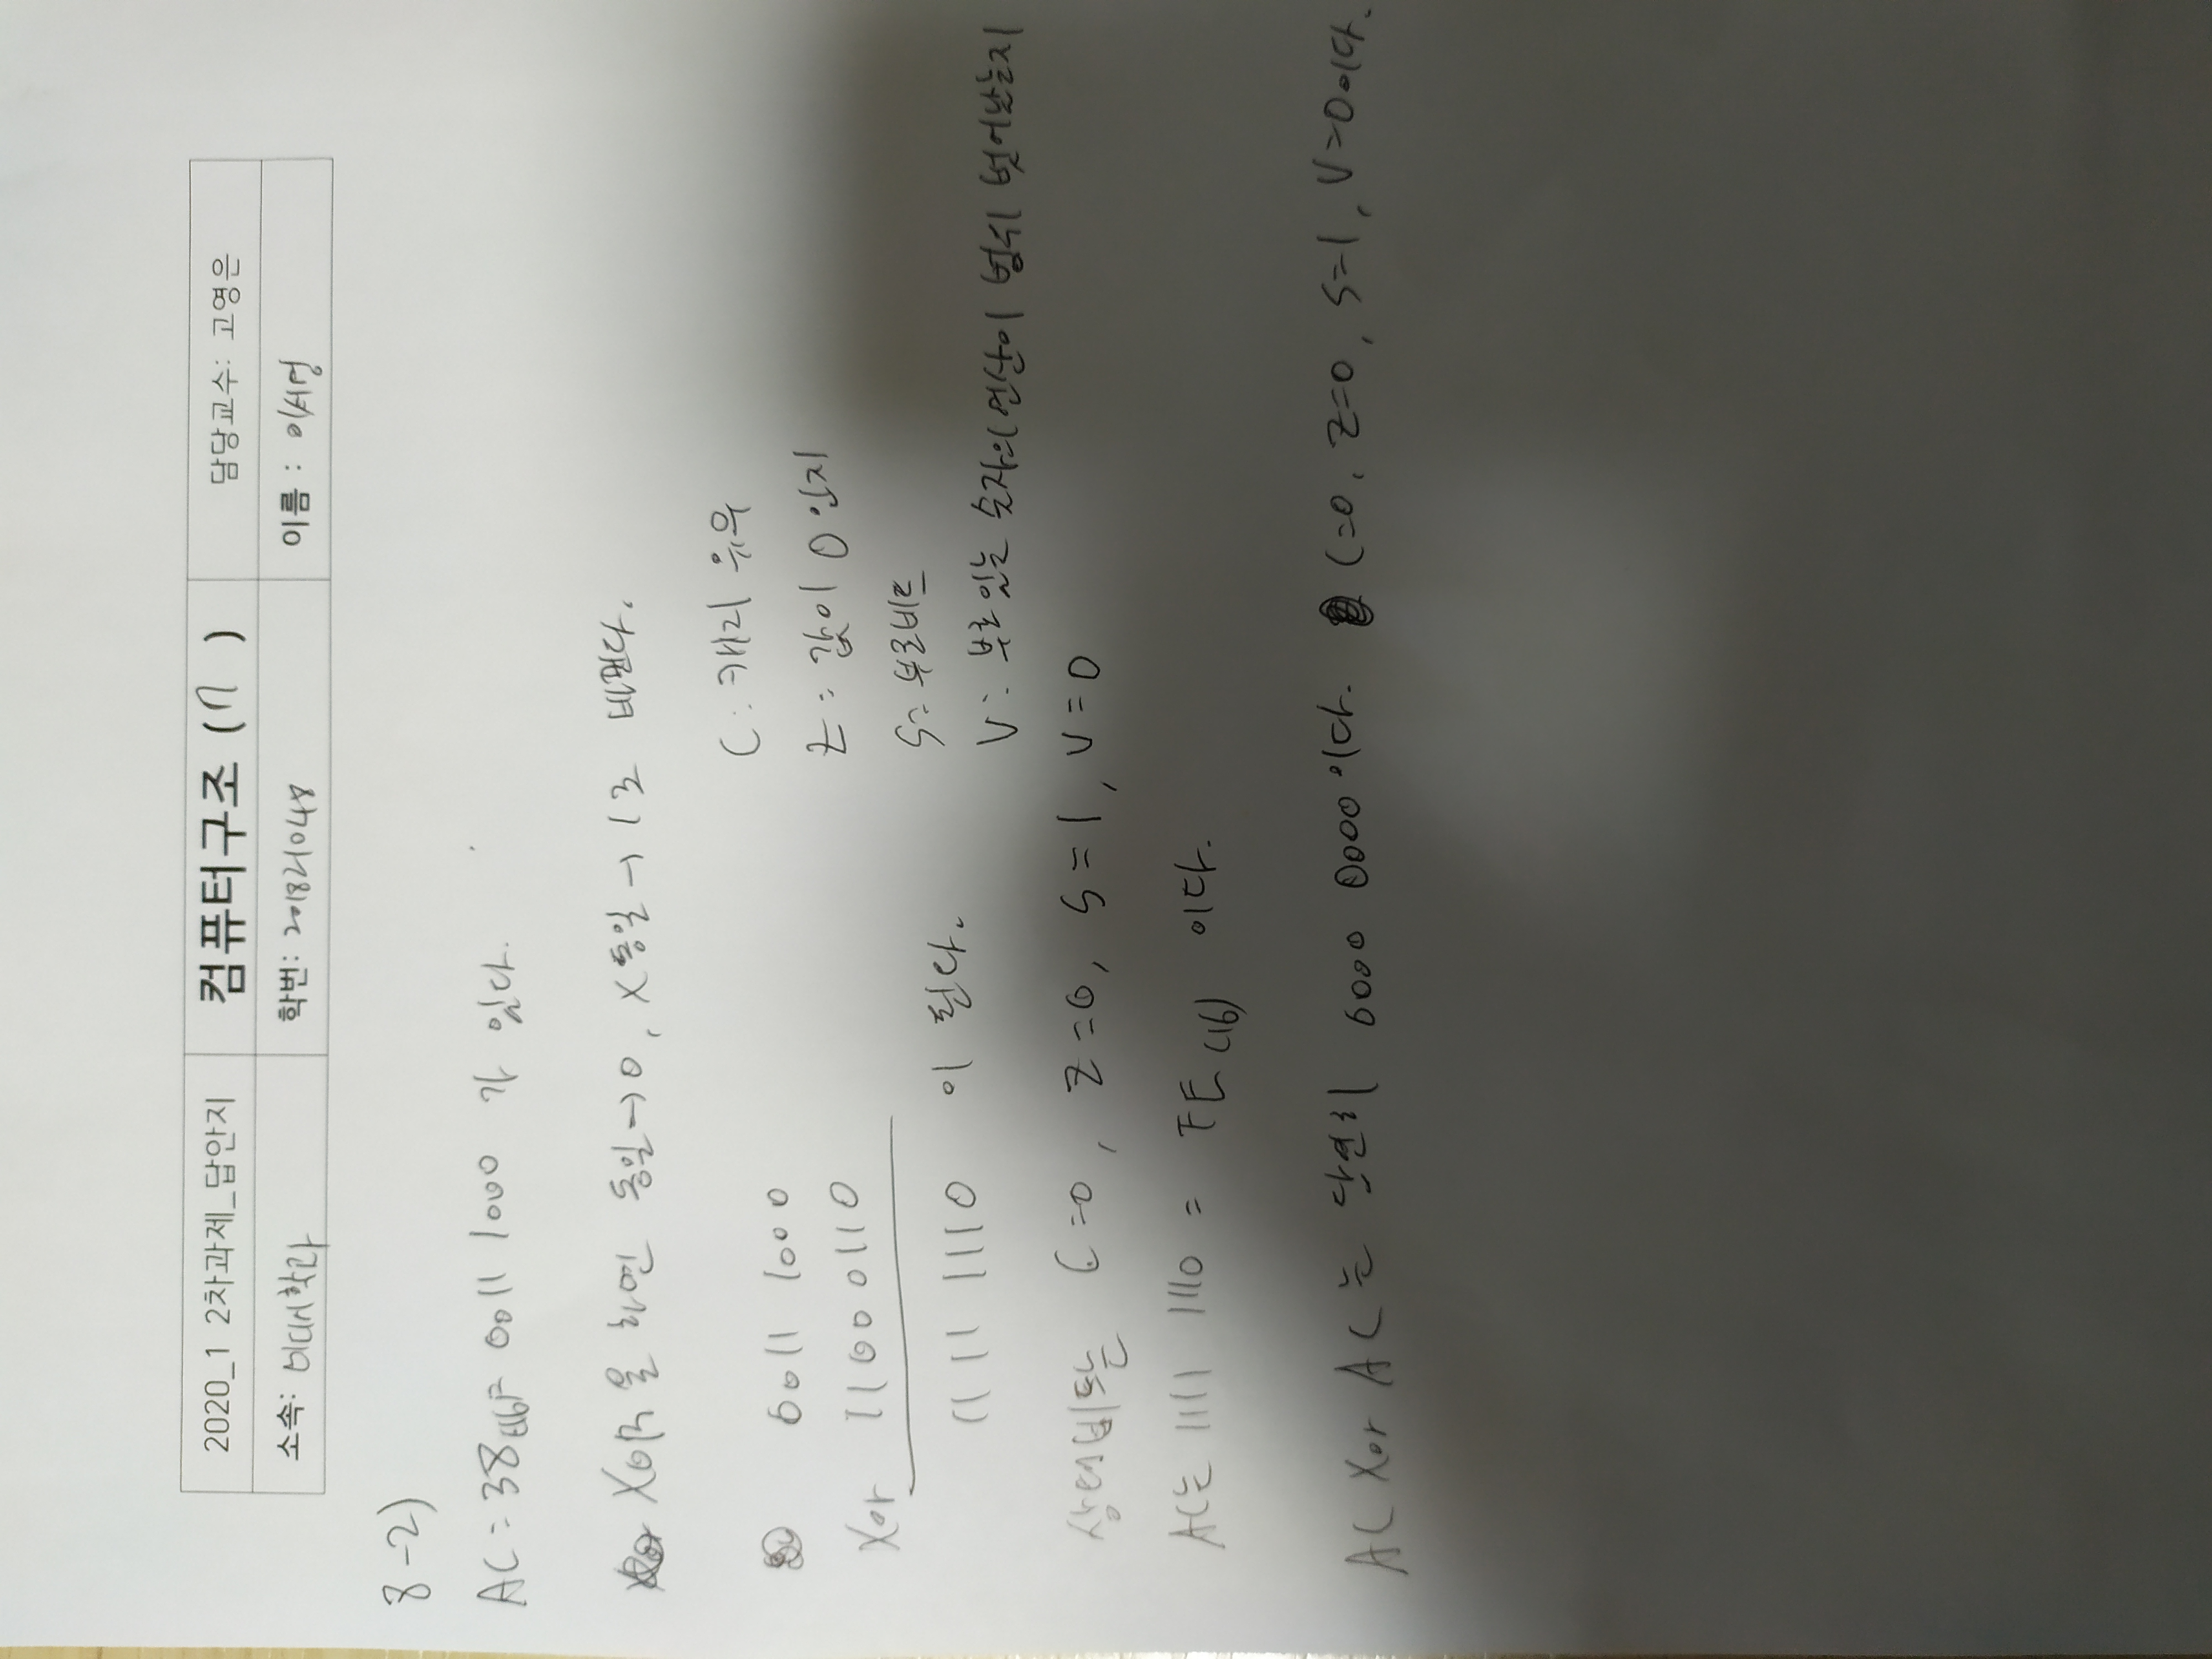 2020_1 2차과제_답안지
컴퓨터구조 (7 )
담당교수: 고영은
소속: 미디어학과
학번: 201821048
이름 : 이서영
8-2)
AC = 38(16)는 0011 1000 가 있다.
XOR을 하면 동일→0, X동일→1로 바뀐다.
0011 1000
Xor 11000110
1111 1110 이 된다.
C: 캐리 유무
Z: 값이 0인지
S= 부호비트
V: 부호있는 숫자의 연산이 범위 벗어났는지
상태비트는 C=0, Z=0, S=1, V=0
AC는 1111 1110 = FE(16) 이다.
AC Xor AC는 당연히 0000 0000이다. C=0, Z=0, S=1, V=0이다.